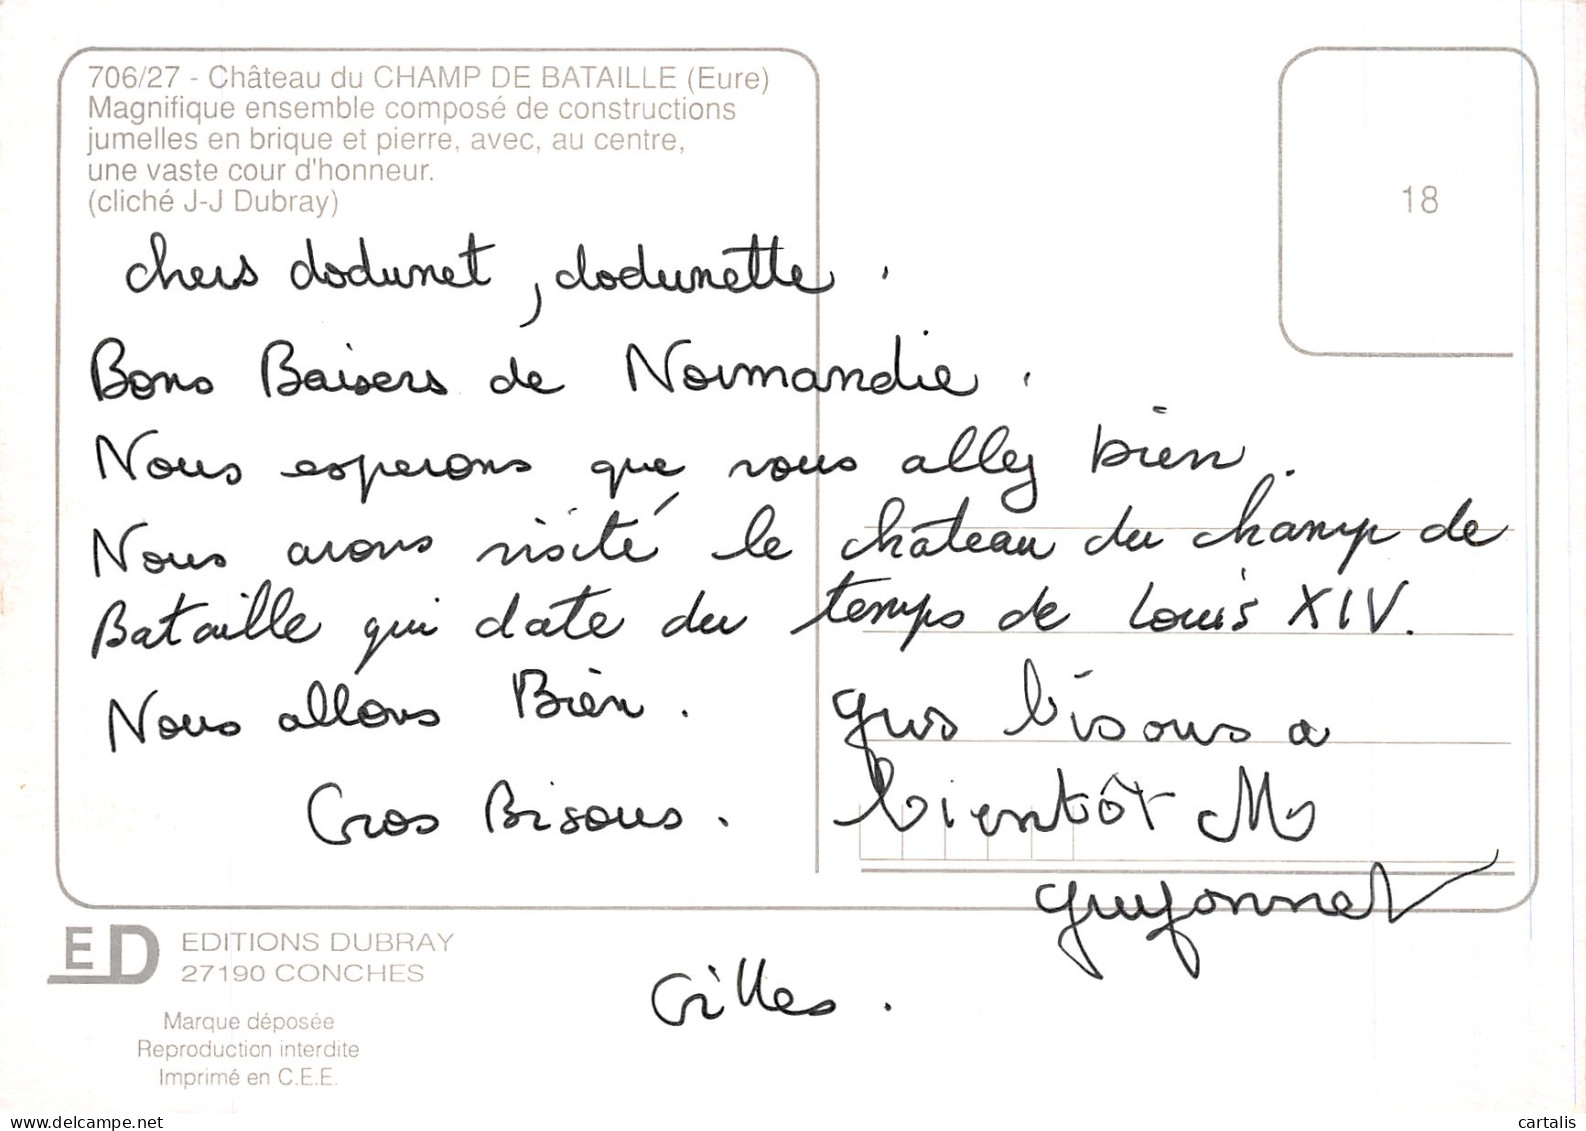 706/27 - Château du CHAMP DE BATAILLE (Eure)
Magnifique ensemble composé de constructions
jumelles en brique et pierre, avec, au centre,
une vaste cour d'honneur.
(cliché J-J Dubray)
18
chers dodunet, dodunette.
Bons Baisers de Normandie.
Nous esperons que vous allez bien.
Nous avons visité le château du champ de
Bataille qui date du temps de Louis XIV.
Nous allons Bien.
Gros Bisous.
gros bisous a
bientôt
guyonnet
Gilles.
ED
EDITIONS DUBRAY
27190 CONCHES
Marque déposée
Reproduction interdite
Imprimé en C.E.E.
www.delcampe.net
cartalis